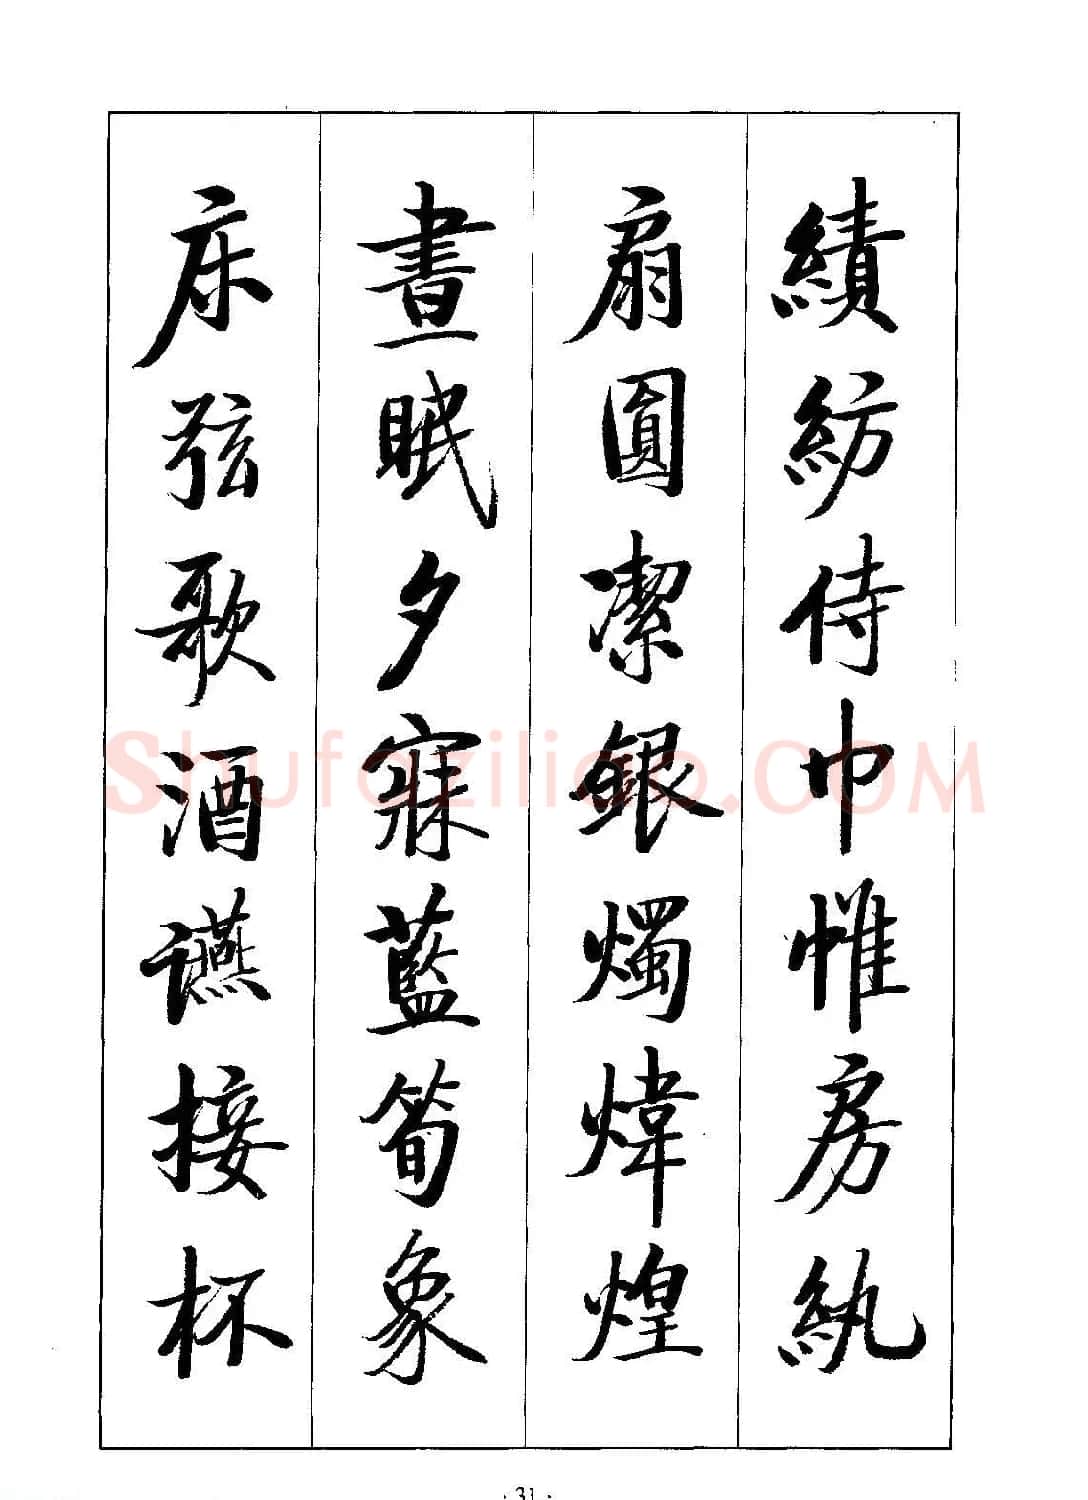 績紡侍巾帷房紈
扇圓潔銀燭煒煌
晝眠夕寐藍筍象
床弦歌酒讌接杯
Shufaziliao.COM
· 31 ·